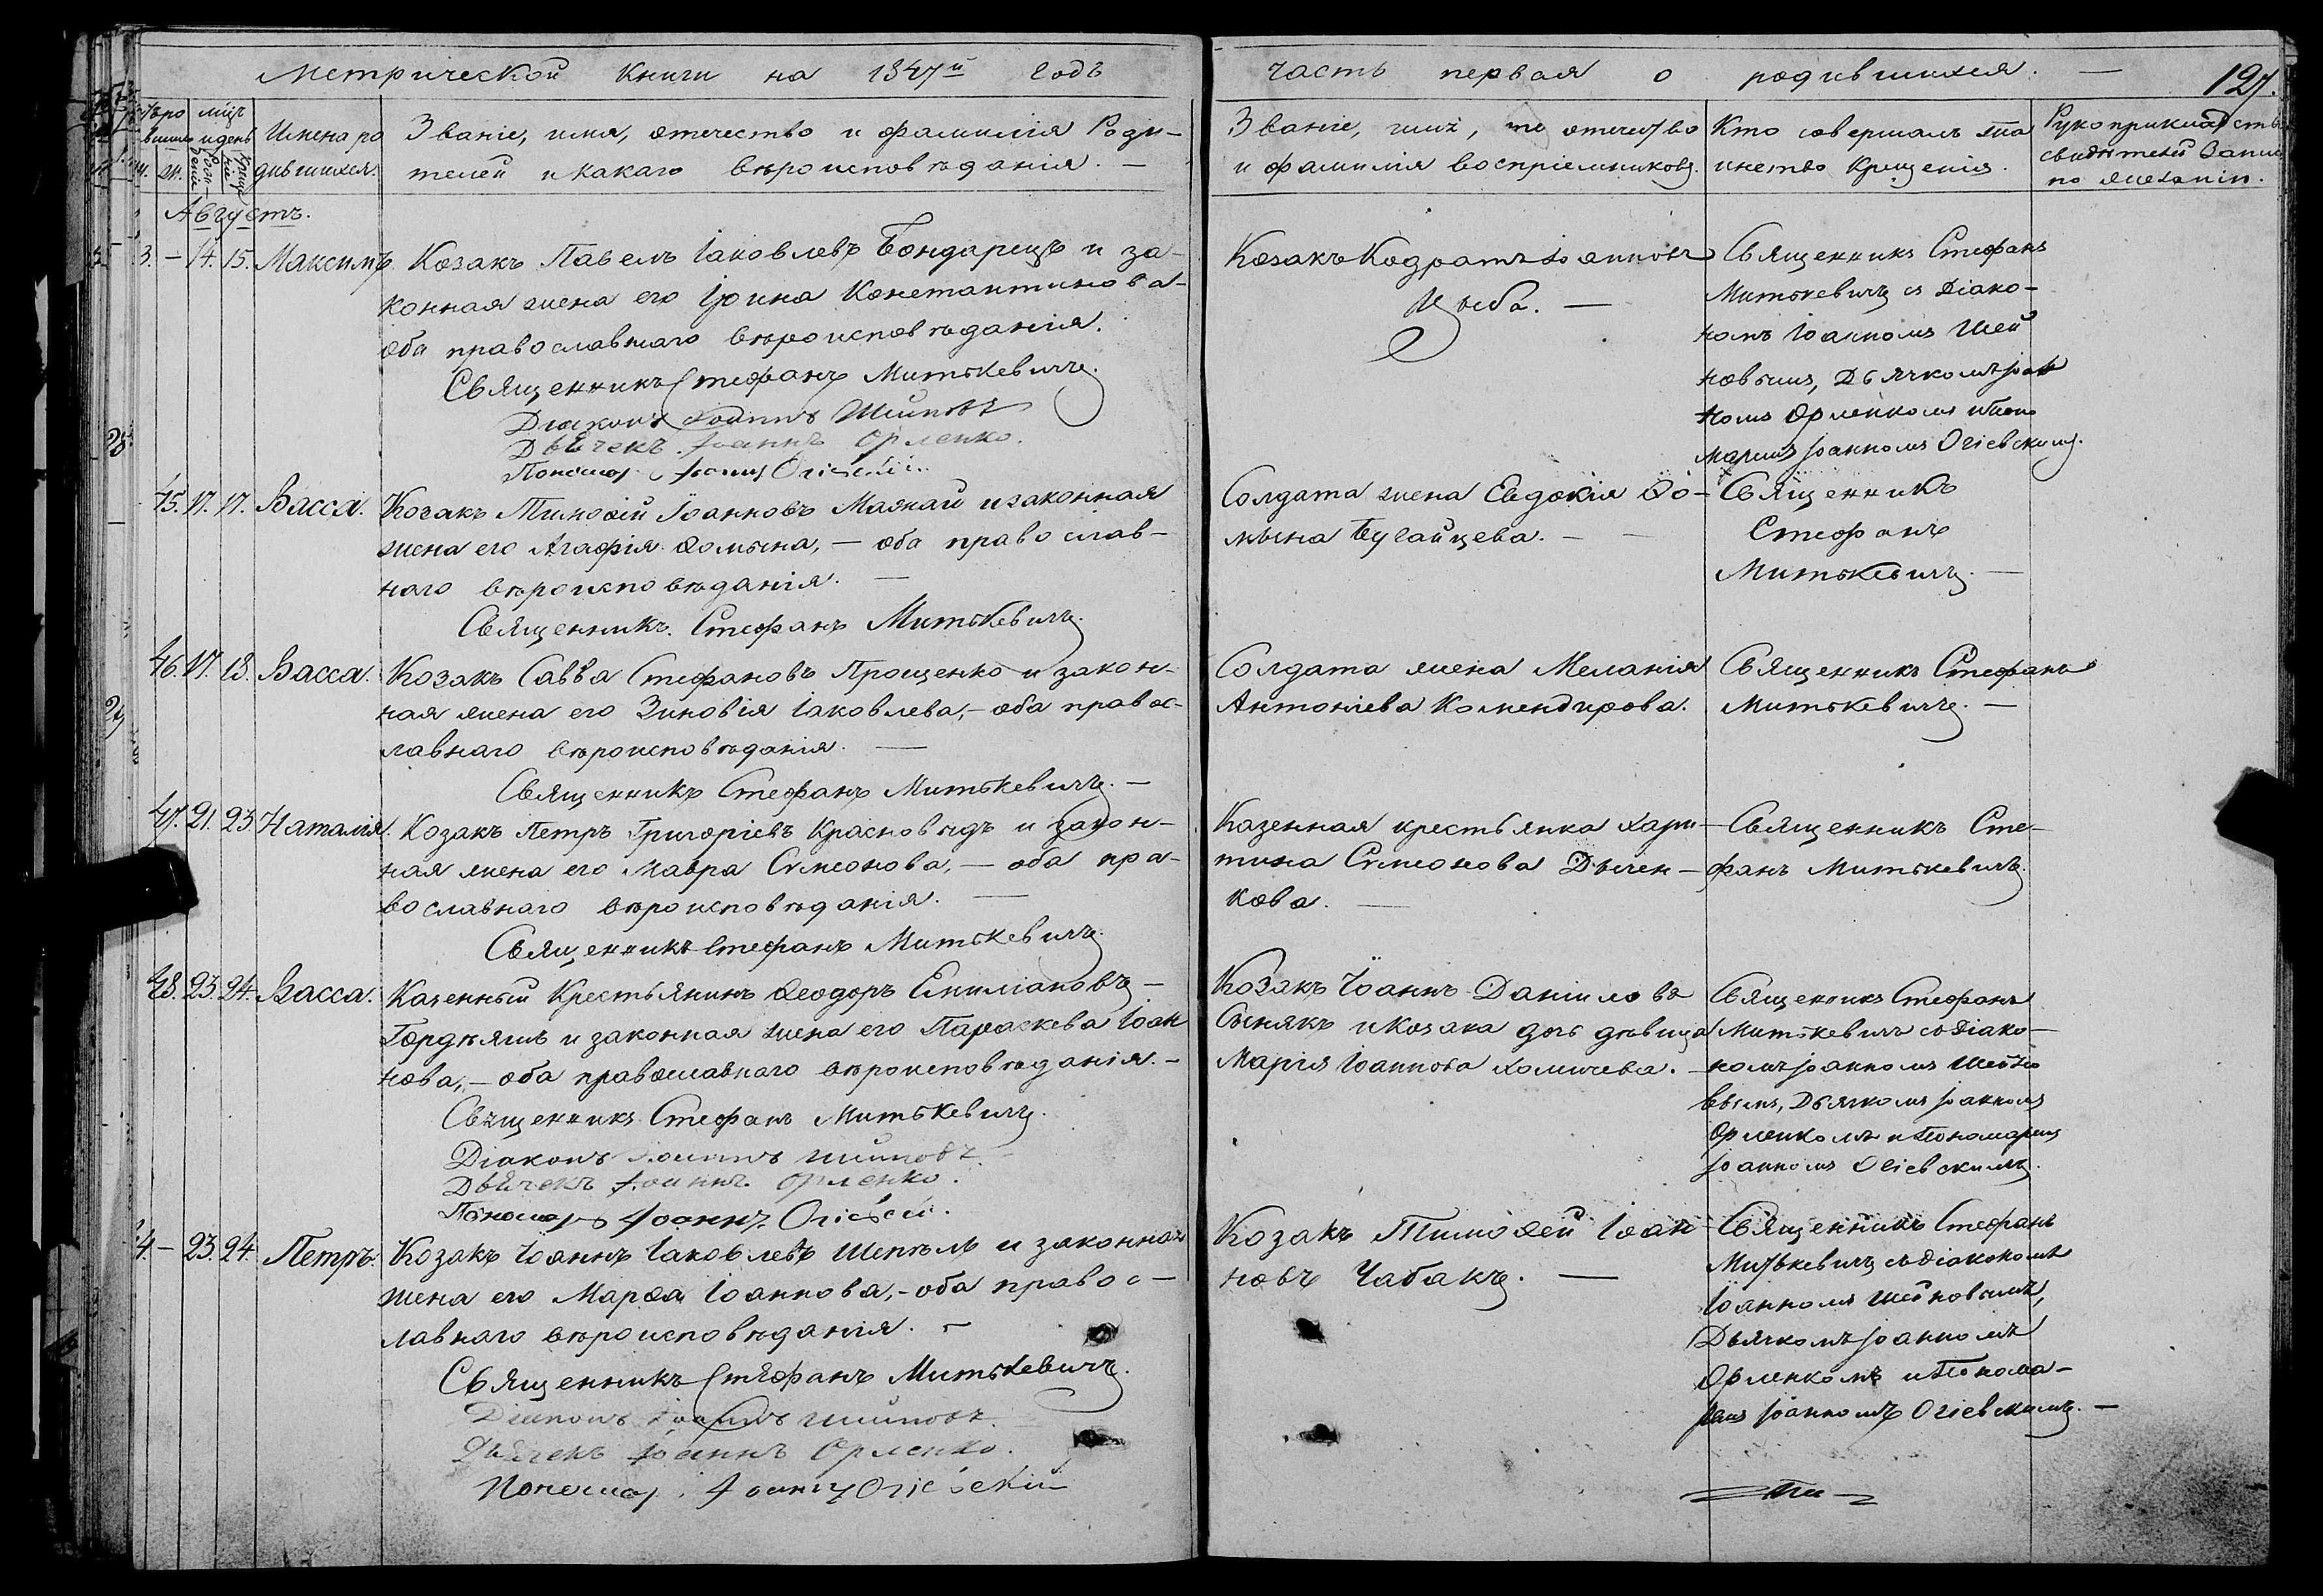 Метрической книги на 1847й годъ
часть первая о родившихся. —
127.
Имена ро
дившихся.
Званіе, имя, отечество и фамилія Роди-
телей и какаго вѣроисповѣданія. —
Званіе, имя, отечество
и фамилія воспріемниковъ.
Кто совершалъ таи
инство крещенія.
Рукоприкладство
свидѣтелей записи
по желанію.
Августъ.
3. — 14. 15. Максимъ
Козакъ Павелъ Іаковлевъ Бондарецъ и за-
конная жена его Ірина Константинова-
оба православнаго вѣроисповѣданія.
Священникъ Стефанъ Митькевичъ.
Діаконъ Іоаннъ Шеиновъ
Дьячекъ Іоаннъ Орленко.
Пономар Іоаннъ Огіевскій.
Козакъ Кодратъ Іоанновъ
Цыба. —
Священникъ Стефанъ
Митькевичъ съ Діако-
номъ Іоанномъ Шей
новымъ, Дьячкомъ Іоан
номъ Орленкомъ и Поно
маремъ Іоанномъ Огіевскимъ.
45. 17. 17. Васса.
Козакъ Тимоѳей Іоанновъ Мазнай и законная
жена его Агафія Ѳомына, — оба православ-
наго вѣроисповѣданія. —
Священникъ Стефанъ Митькевичъ.
Солдата жена Евдокія Ѳо-
мына Бугайцева. —
Священникъ
Стефанъ
Митькевичъ. —
46. 17. 18. Васса.
Козакъ Савва Стефановъ Прощенко и закон-
ная жена его Зиновія Іаковлева, — оба правос-
лавнаго вѣроисповѣданія. —
Священникъ Стефанъ Митькевичъ. —
Солдата жена Меланія
Антоніева Комендирова.
Священникъ Стефанъ
Митькевичъ. —
47. 21. 23. Наталія.
Козакъ Петръ Григоріевъ Красновидъ и закон-
ная жена его Мавра Симеонова, — оба пра-
вославнаго вѣроисповѣданія. —
Священникъ Стефанъ Митькевичъ.
Казенная крестьянка Хари-
тина Симеонова Дычен-
кова. —
Священникъ Сте-
фанъ Митькевичъ.
48. 23. 24. Васса.
Казенный Крестьянинъ Ѳеодоръ Емиліановъ —
Гордѣяшъ и законная жена его Параскева Іоан
нова, — оба православнаго вѣроисповѣданія. —
Священникъ Стефанъ Митькевичъ.
Діаконъ Іоаннъ Шеиновъ.
Дьячекъ Іоаннъ Орленко.
Пономарь Іоаннъ Огіевскій.
Козакъ Іоаннъ Даніиловъ
Сынякъ и Козака дочь дѣвица
Марія Іоаннова Хомичева.
Священникъ Стефанъ
Митькевичъ со Діако-
номъ Іоанномъ Шейно
вымъ, Дьячкомъ Іоанномъ
Орленкомъ и Пономаремъ
Іоанномъ Огіевскимъ.
— 23. 24. Петръ.
Козакъ Іоаннъ Іаковлевъ Шепель и законная
жена его Марѳа Іоаннова, — оба правос-
лавнаго вѣроисповѣданія. —
Священникъ Стефанъ Митькевичъ.
Діаконъ Іоаннъ Шеиновъ.
Дьячекъ Іоаннъ Орленко.
Пономар Іоаннъ Огіевскій
Козакъ Тимоѳей Іоан
новъ Чабакъ. —
Священникъ Стефанъ
Митькевичъ съ діакономъ
Іоанномъ Шейновымъ,
Дьячкомъ Іоанномъ
Орленкомъ и Понома-
ремъ Іоанномъ Огіевскимъ. —